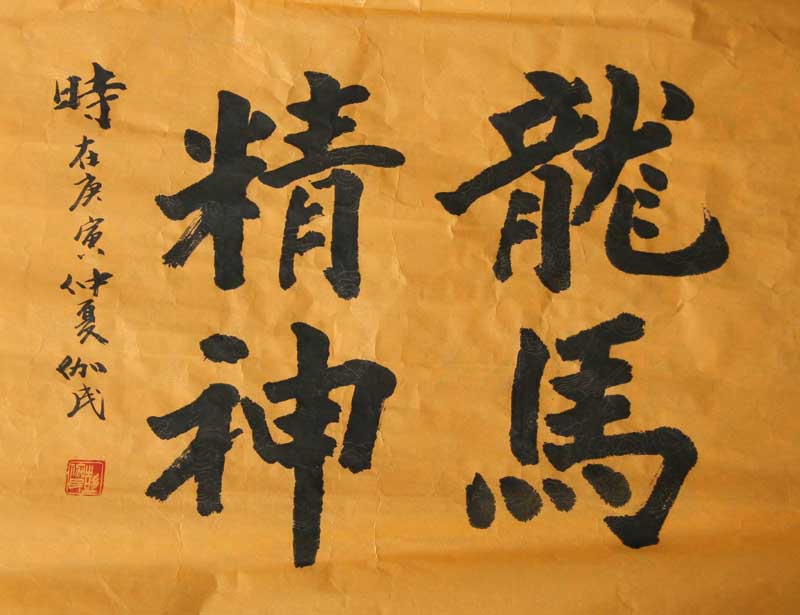 龍馬
精神
時在庚寅仲夏伽民